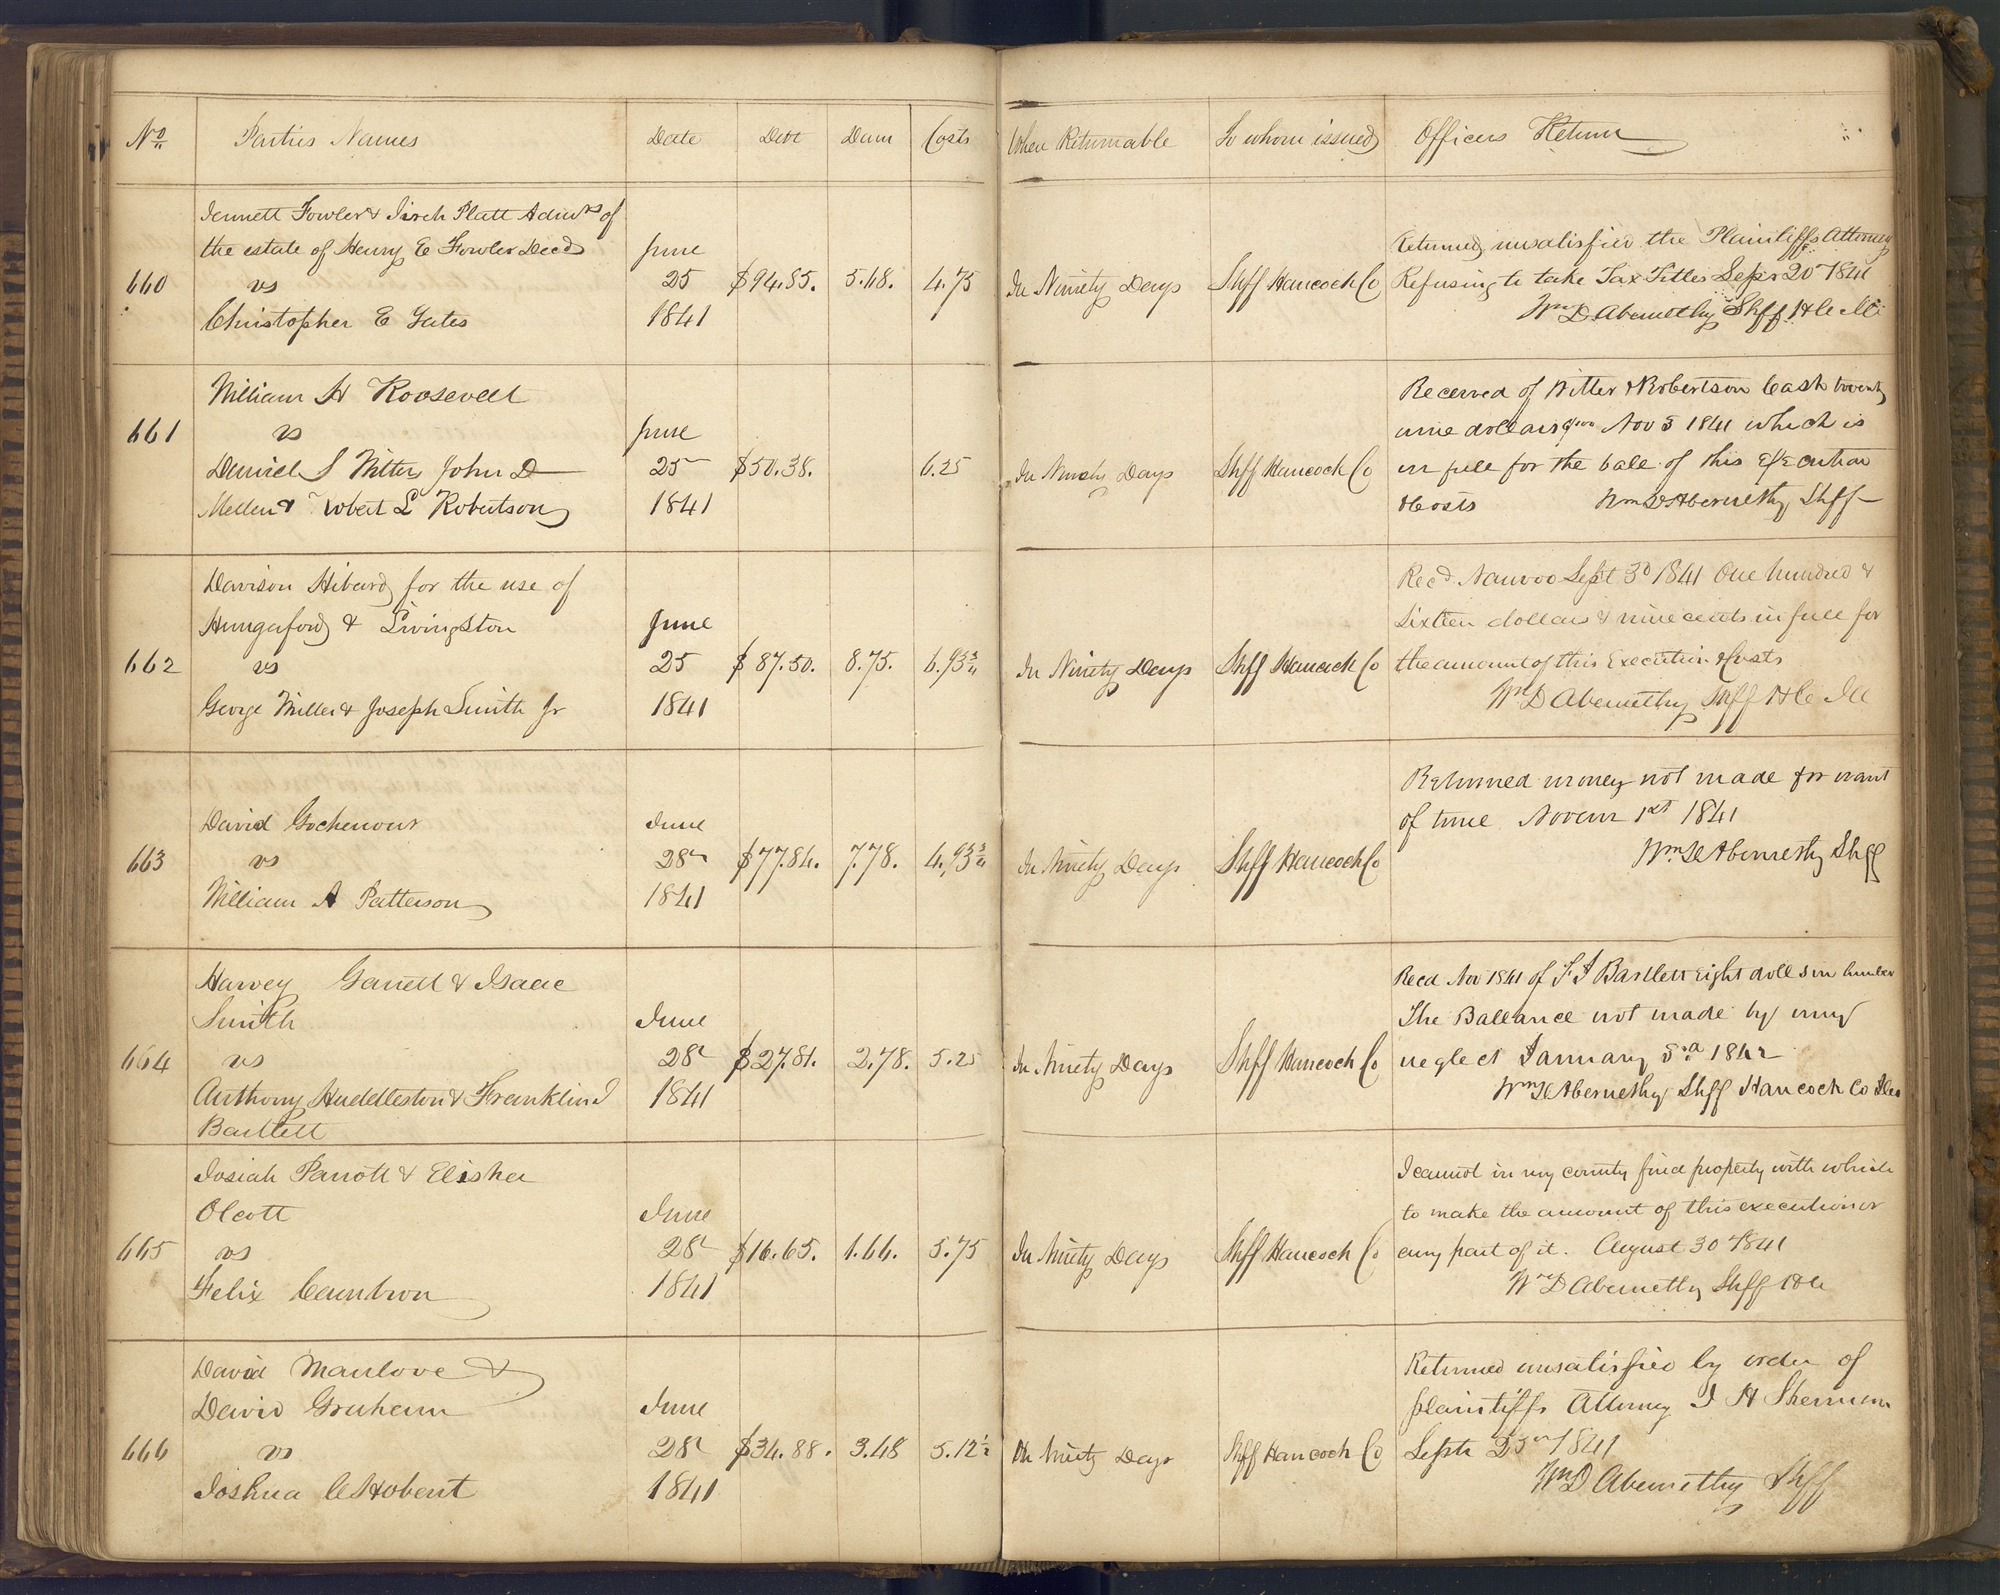 No Parties Names Date Debt Dam Costs When Returnable To whom issued Officers Return
Jennett Fowler & Platt Admrs of
the estate of Henry E Fowler Decd
vs
Christopher E Yates
660
June
25
1841
$94.85. 5.68. 4.75
In Ninety Days Shff Hancock Co
Returned unsatisfied the Plaintiffs Attorney
Refusing to take Tax Titles Sepr 20th 1841
Wm D Abernethy Shff H C Ill
William H Roosevelt
vs
Daniel S Witter John D
Mellen & Robert L Robertson
661
June
25
1841
$50.38. 6.25
In Ninety Days Shff Hancock Co
Received of Witter & Robertson Cash twenty
nine dollars Nov 3 1841 which is
in full for the bale of this Execution
& Costs Wm D Abernethy Shff
Davison Hibard for the use of
Hungerford & Livingston
vs
George Miller & Joseph Smith Jr
662
June
25
1841
$87.50. 8.75. 6.93¾
In Ninety Days Shff Hancock Co
Recd. Nauvoo Sept 3d 1841 One hundred &
Sixteen dollars & nine cents in full for
the amount of this Execution & Costs
Wm D Abernethy Shff H C Ill
David Gochenour
vs
William A Patterson
663
June
28th
1841
$77.84. 7.78. 4.93¾
In Ninety Days Shff Hancock Co
Returned money not made for want
of time Novem 1st 1841
Wm D Abernethy Shff
Harvey Garrett & Isaac
Smith
vs
Anthony Huddleston & Franklin J
Bartlett
664
June
28th
1841
$27.81. 2.78. 5.25
In Ninety Days Shff Hancock Co
Recd Nov 1841 of F J Bartlett Eight dolls in lumber
The Ballance not made by my
neglect January 1842
Wm D Abernethy Shff Hancock Co Ills
Josiah Parrott & Elisha
Olcott
vs
Felix Cambron
665
June
28th
1841
$16.65. 1.66. 5.75
In Ninety Days Shff Hancock Co
I cannot in my county find property with which
to make the amount of this execution or
any part of it. August 30th 1841
Wm D Abernethy Shff H C
David Manlove &
David Graham
vs
Joshua C Hobert
666
June
28th
1841
$34.88. 3.48 5.12½
In Ninety Days Shff Hancock Co
Returned unsatisfied by order of
plaintiffs Attorney I H Sherman
Septr 25th 1841
Wm D Abernethy Shff